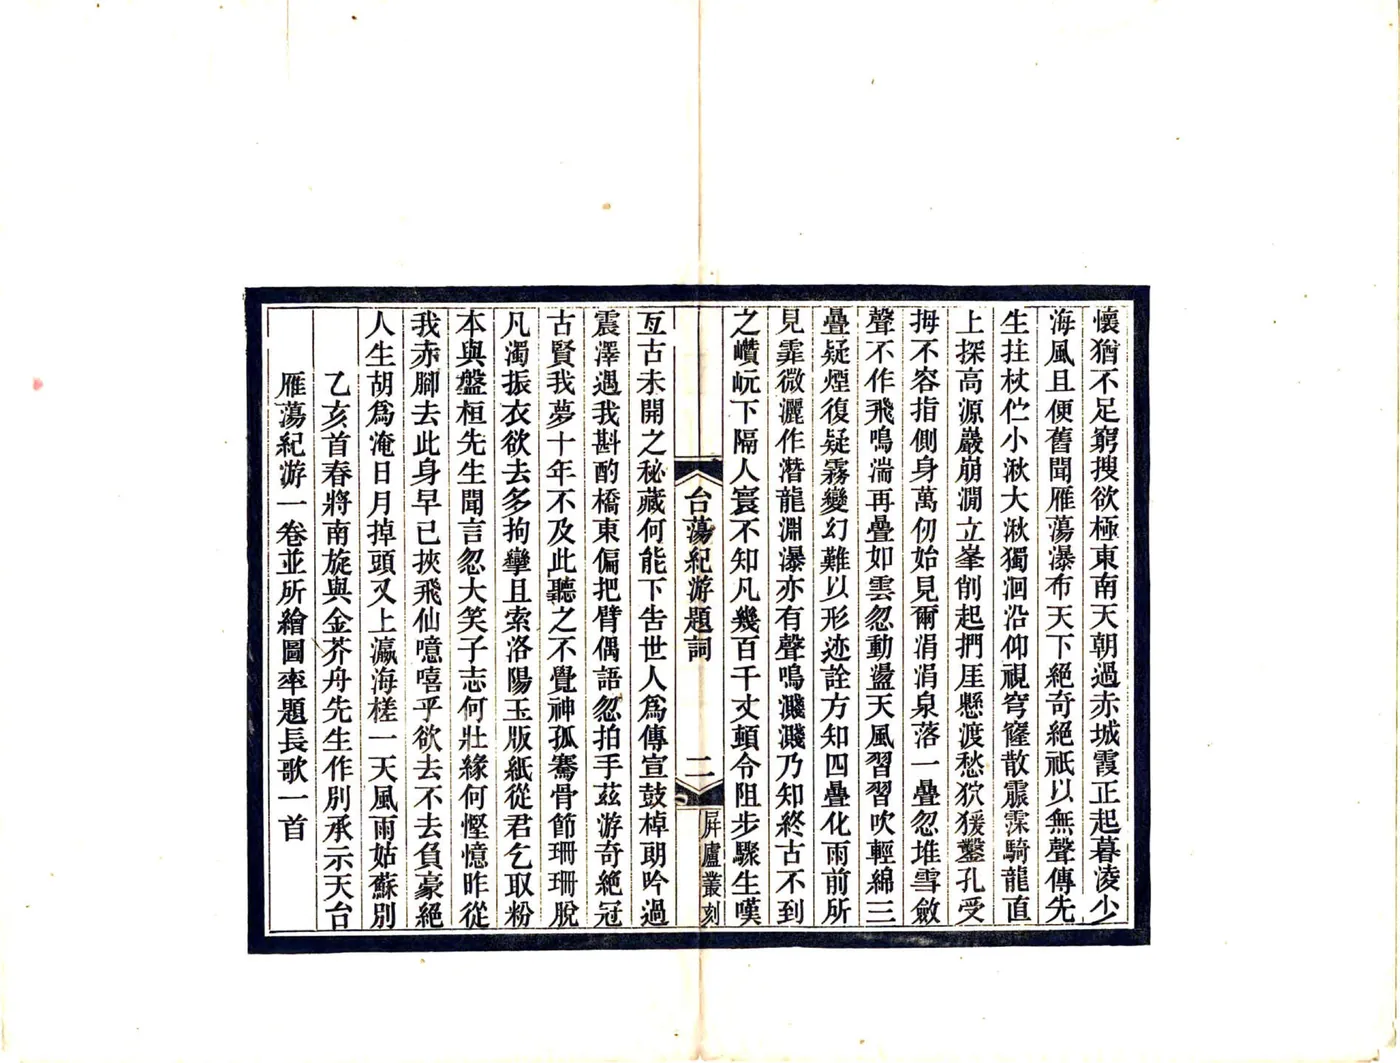 懷猶不足窮搜欲極東南天朝過赤城霞正起暮凌少
海風且便舊聞雁蕩瀑布天下絕奇絕祇以無聲傳先
生拄杖伫小湫大湫獨洄沿仰視穹窿散霢霂騎龍直
上探高源巖崩澗立峯削起捫厓懸渡愁狖猨鑿孔受
拇不容指側身萬仞始見爾涓涓泉落一疊忽堆雪斂
聲不作飛鳴湍再疊如雲忽動盪天風習習吹輕綿三
疊疑煙復疑霧變幻難以形迹詮方知四疊化雨前所
見霏微灑作潛龍淵瀑亦有聲鳴濺濺乃知終古不到
之巑岏下隔人寰不知凡幾百千丈頓令阻步驟生嘆
台蕩紀游題詞
二
屛廬叢刻
亙古未開之秘藏何能下吿世人爲傳宣鼓棹朗吟過
震澤遇我斟酌橋東偏把臂偶語忽拍手茲游奇絕冠
古賢我夢十年不及此聽之不覺神孤騫骨節珊珊脫
凡濁振衣欲去多拘攣且索洛陽玉版紙從君乞取粉
本與盤桓先生聞言忽大笑子志何壯緣何慳憶昨從
我赤腳去此身早已挾飛仙噫嘻乎欲去不去負豪絕
人生胡爲淹日月掉頭又上瀛海槎一天風雨姑蘇別
乙亥首春將南旋與金芥舟先生作別承示天台
雁蕩紀游一卷並所繪圖率題長歌一首